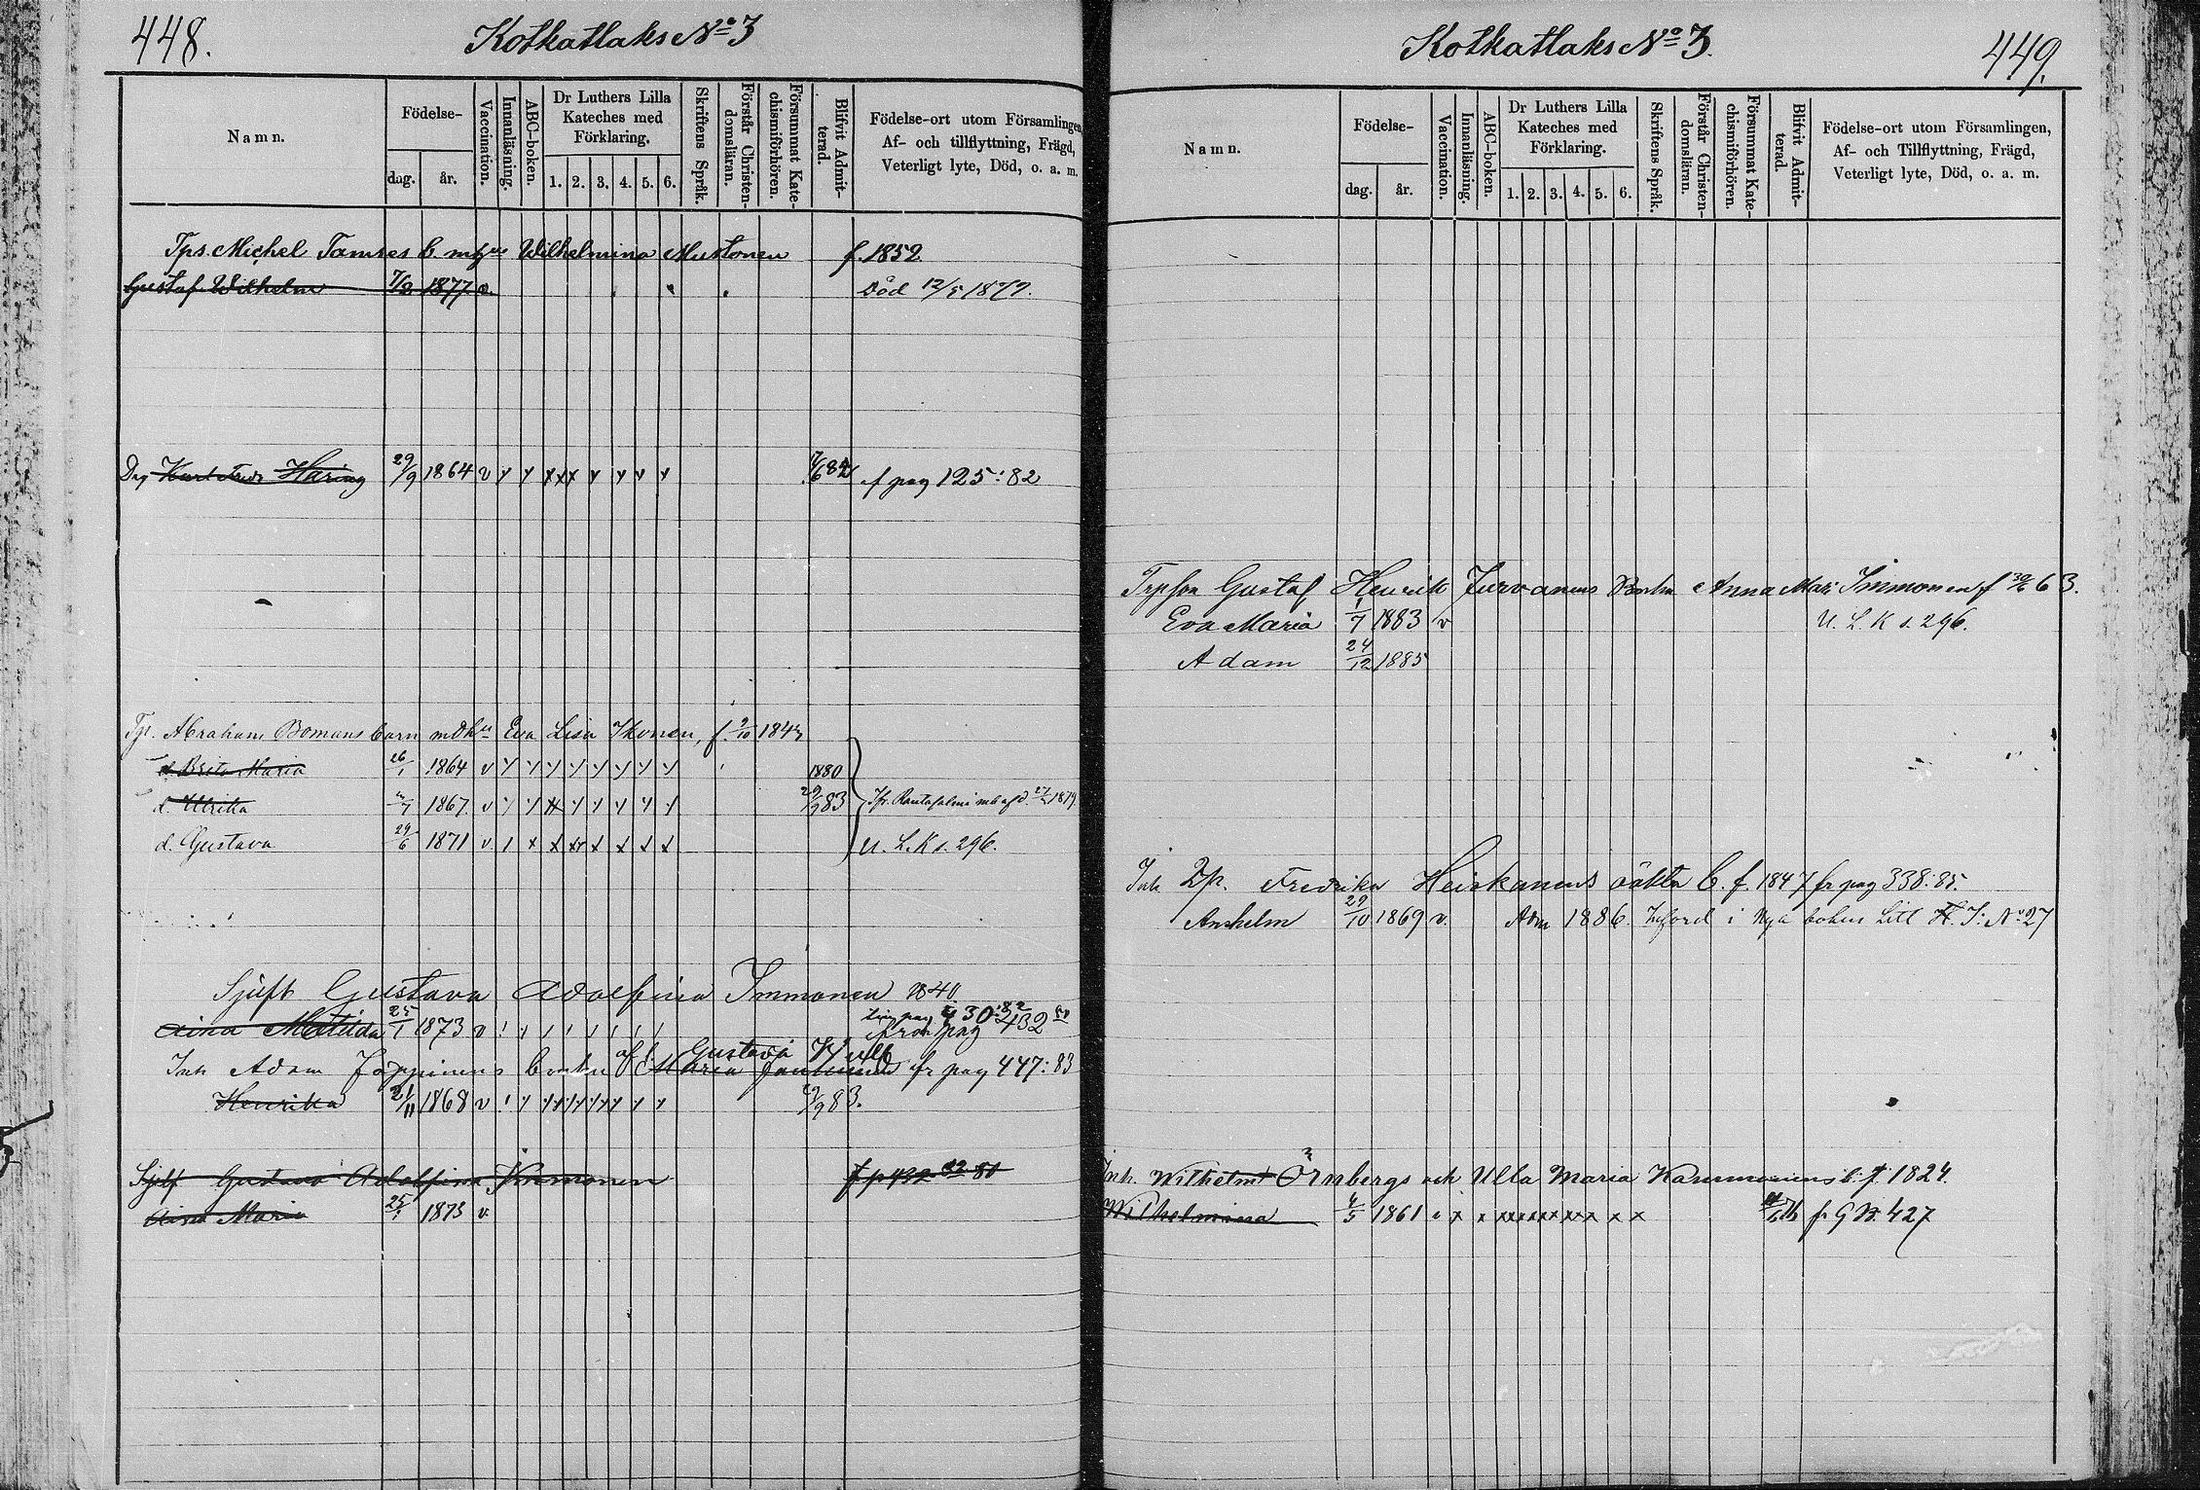 448.
Kotkatlaks No 3
Namn.
Födelse-
dag.
år.
Vaccination.
Innanläsning.
ABC-boken.
Dr Luthers Lilla Kateches med Förklaring.
1. 2. 3. 4. 5. 6.
Skriftens Språk.
Förstår Christen-domsläran.
Försummat Kate-chismiförhören.
Blifvit Admit-terad.
Födelse-ort utom Församlingen,
Af- och tillflyttning, Frägd,
Veterligt lyte, Död, o. a. m.
Tps. Michel Tamses b. Wilhelmina Mustonen f. 1852
Gustaf Wilhelm 7/2 1877 v. Död 12/5 1877.
Drg Häring 29/9 1864 v f pag 125: 82
Tp. Abraham Bomans barn Eva Lisa Ikonen, f. 2/10 1847
d. Brita Maria 26/1 1864 v 1880
d. Ulrika 1867. v 29/9 83
d. Gustava 29/6 1871 v U. L. K s. 296.
Sjelft Gustava Adolfina Immonen 1840.
Aina Matilda 25/1 1873 v från pag 432
Inh Adam Joppinens fr pag 447: 83
Henrika 21/11 1868 v 83.
Sjelf Gustava Adolfina Immonen
Aina Maria 25/1 1873 v.
Kotkatlaks No 3.
449.
Namn.
Födelse-
dag.
år.
Vaccination.
Innanläsning.
ABC-boken.
Dr Luthers Lilla Kateches med Förklaring.
1. 2. 3. 4. 5. 6.
Skriftens Språk.
Förstår Christen-domsläran.
Försummat Kate-chismiförhören.
Blifvit Admit-terad.
Födelse-ort utom Församlingen,
Af- och Tillflyttning, Frägd,
Veterligt lyte, Död, o. a. m.
Gustaf Henrik Jurvanens Anna Mari Immonen f 63.
Eva Maria 1/7 1883 v U. L. K s. 296.
Adam 24/12 1885
Inh Fredrika Heiskanens oäkta b. f. 1847 fr pag 338: 85.
Anshelm 29/10 1869 v. Adm 1886. Införd i Nya boken Litt No 27
Inh. Wilhelm Örnbergs och Ulla Maria b. f. 1824.
Wilhelmina 4/5 1861 427